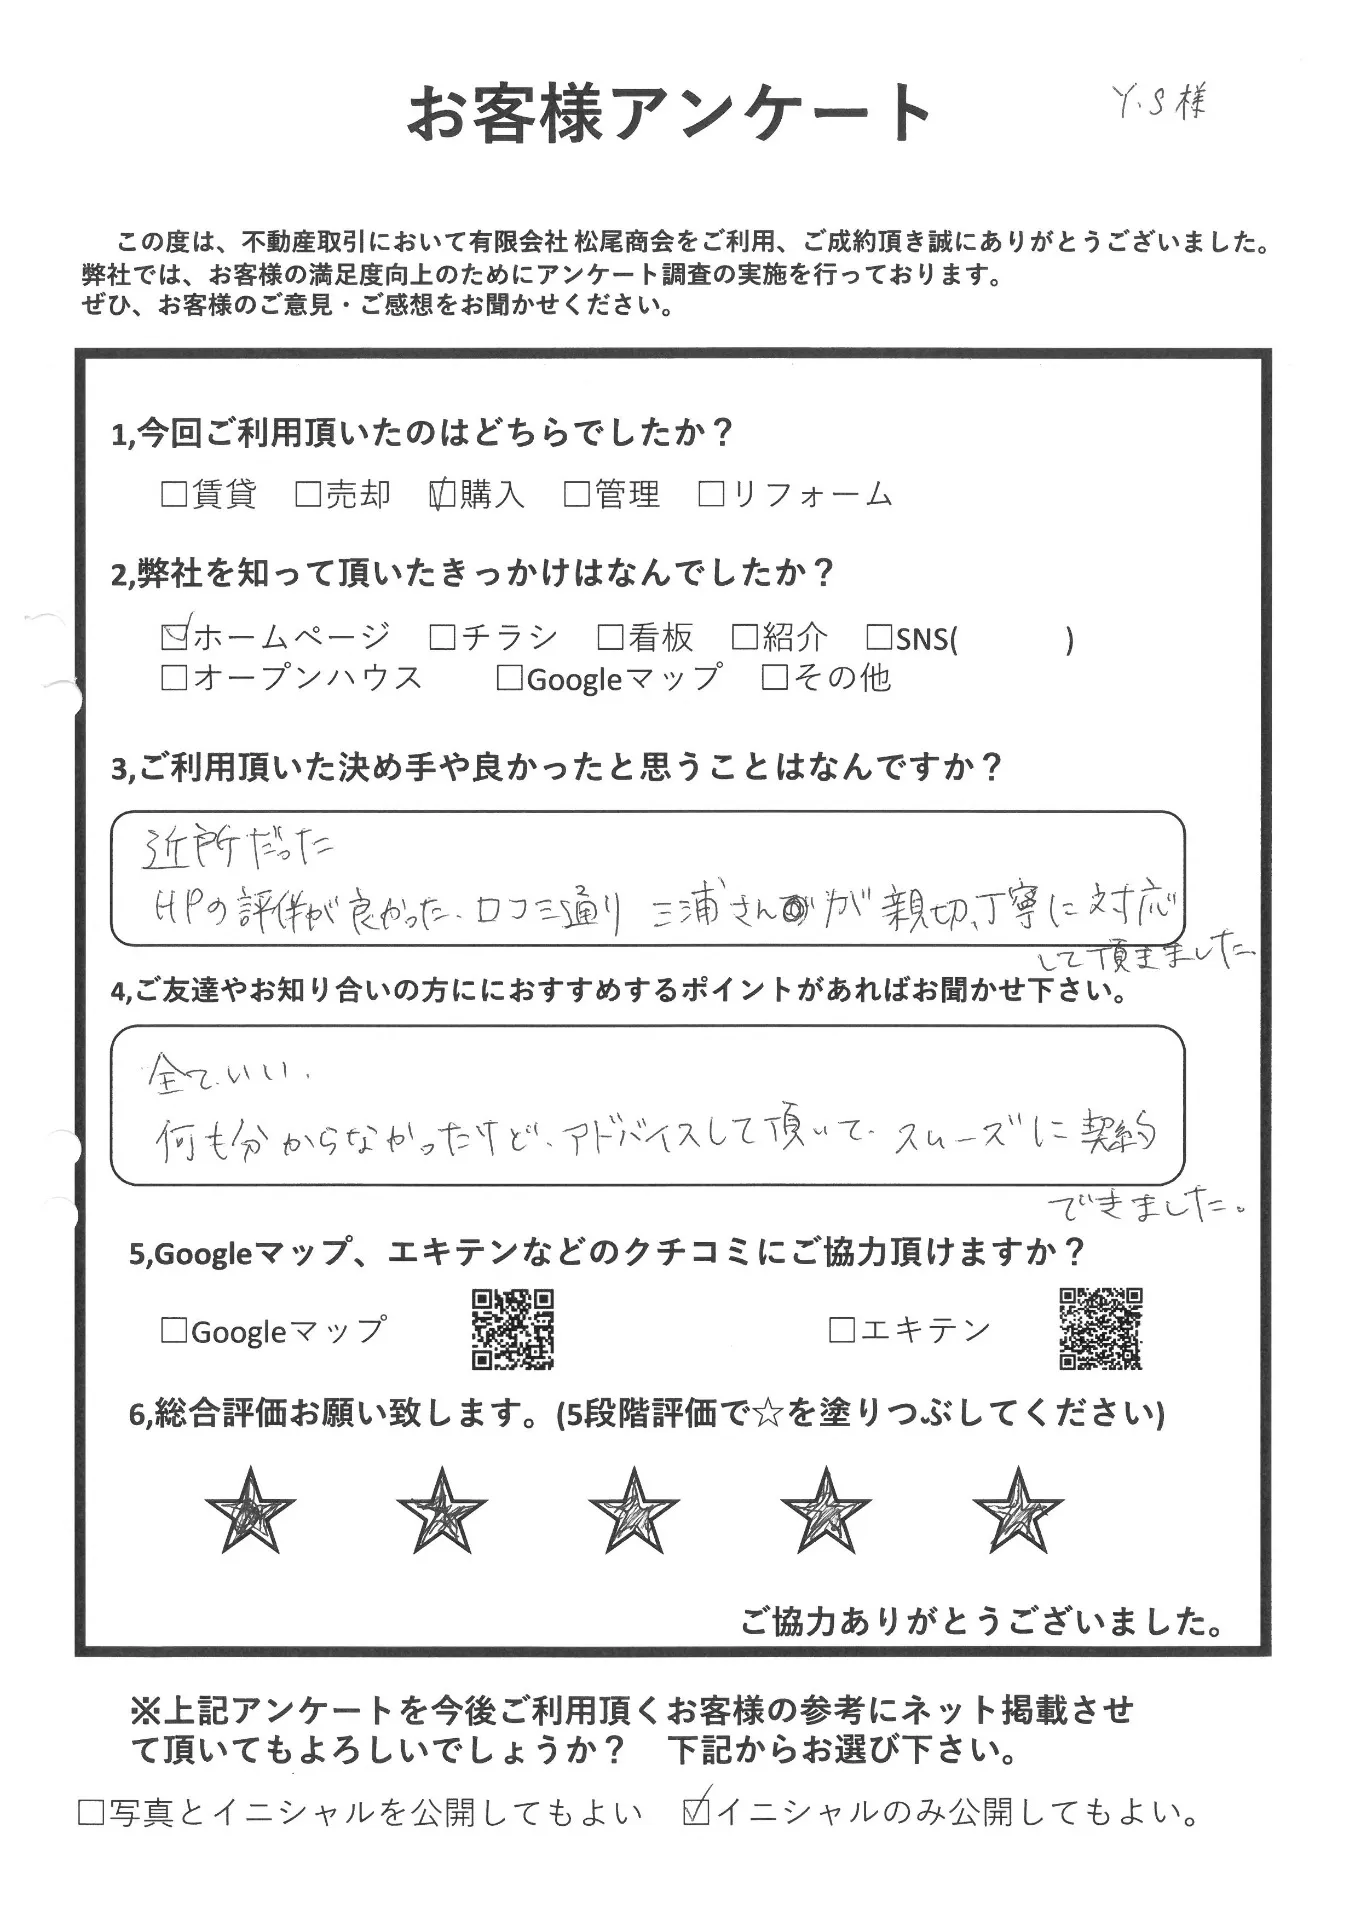 お客様アンケート
Y.S様
この度は、不動産取引において有限会社 松尾商会をご利用、ご成約頂き誠にありがとうございました。
弊社では、お客様の満足度向上のためにアンケート調査の実施を行っております。
ぜひ、お客様のご意見・ご感想をお聞かせください。
1,今回ご利用頂いたのはどちらでしたか？
□賃貸 □売却 ☑購入 □管理 □リフォーム
2,弊社を知って頂いたきっかけはなんでしたか？
☑ホームページ □チラシ □看板 □紹介 □SNS( )
□オープンハウス □Googleマップ □その他
3,ご利用頂いた決め手や良かったと思うことはなんですか？
近所だった
HPの評価が良かった、口コミ通り 三浦さんが親切、丁寧に対応
して頂きました
4,ご友達やお知り合いの方ににおすすめするポイントがあればお聞かせ下さい。
全ていい、
何も分からなかったけど、アドバイスして頂いて、スムーズに契約
できました。
5,Googleマップ、エキテンなどのクチコミにご協力頂けますか？
□Googleマップ □エキテン
6,総合評価お願い致します。(5段階評価で☆を塗りつぶしてください)
★ ★ ★ ★ ★
ご協力ありがとうございました。
※上記アンケートを今後ご利用頂くお客様の参考にネット掲載させ
て頂いてもよろしいでしょうか？ 下記からお選び下さい。
□写真とイニシャルを公開してもよい ☑イニシャルのみ公開してもよい。